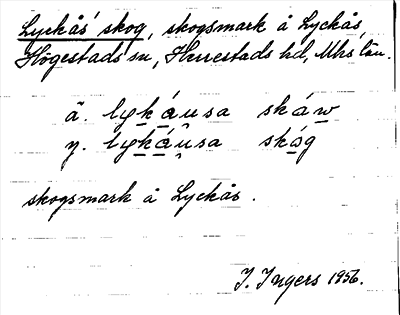 Lyckås' skog, skogsmark å Lyckås,
Högestads sn, Herrestads hd, Mhs län.
ä. lykáusa skáw
y. lykáûsa skåg
skogsmark å Lyckås.
J. Ingers 1956.